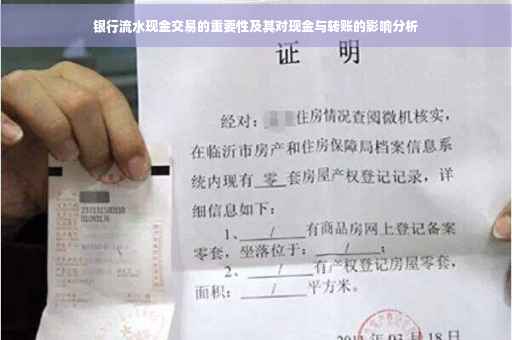 银行流水现金交易的重要性及其对现金与转账的影响分析
证 明
经对：住房情况查阅微机核实，
在临沂市房产和住房保障局档案信息系
统内现有 零 套房屋产权登记记录，详
细信息如下：
1、 / 有商品房网上登记备案
零套，坐落位于： / ；
2、 / 有产权登记房屋零套，
面积： / 平方米。
年 03 月 18 日